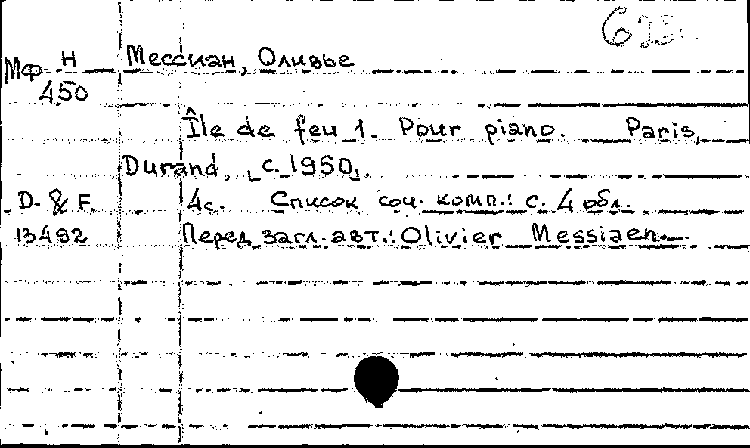 Мф Н Мессиан, Оливье
450
Île de feu 1. Pour piano. Paris,
Durand, [c. 1950].
D. & F. 4с. Список соч. комп.: с. 4 обл.
13492 Перед загл. авт.: Olivier Messiaen.